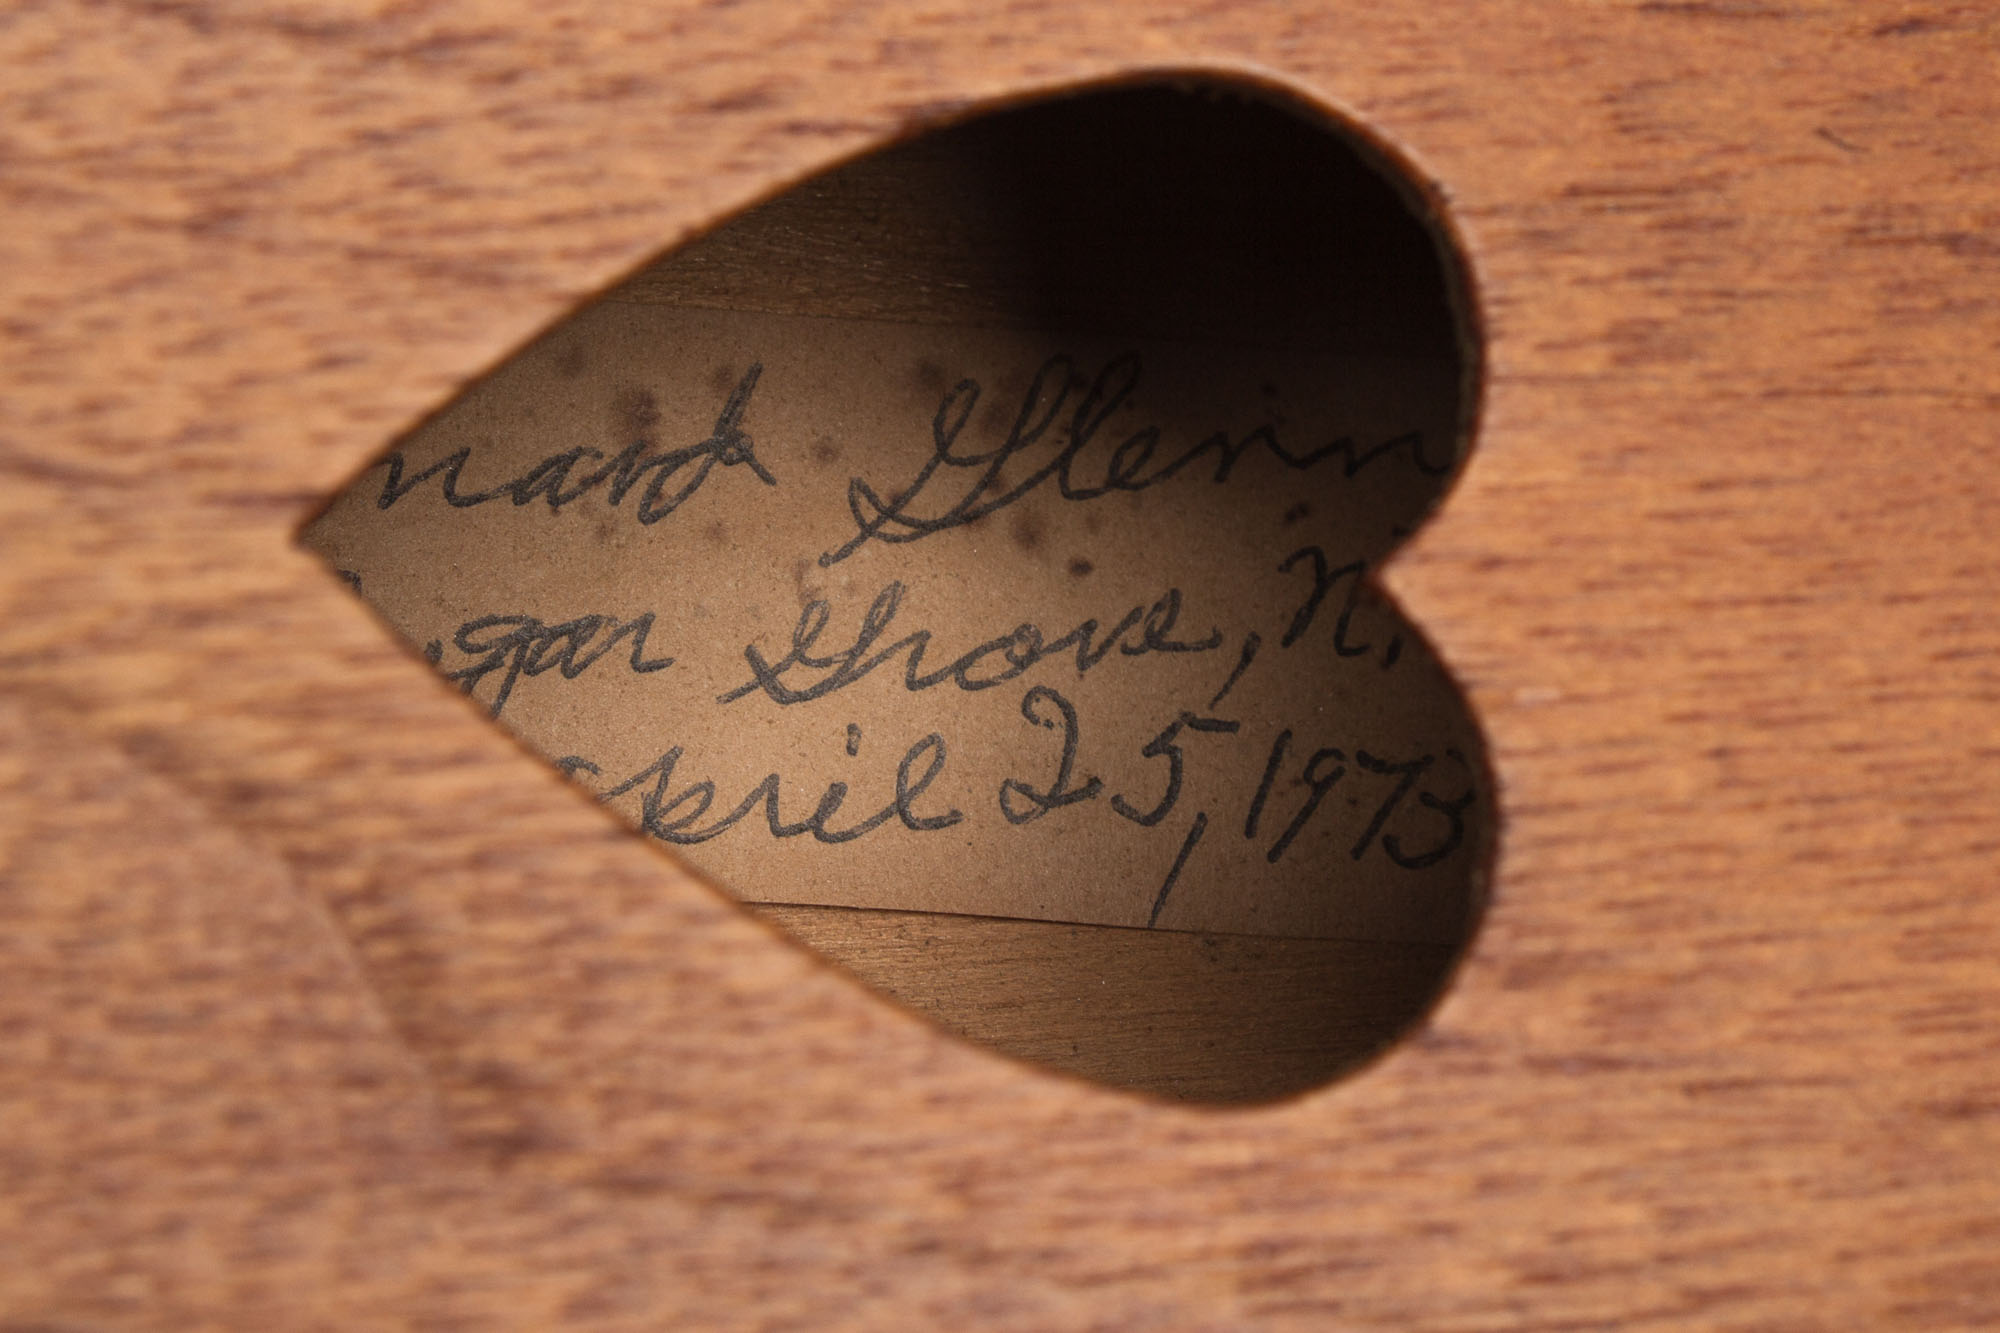 nard Glenn
ugar Grove, N.
April 25, 1973